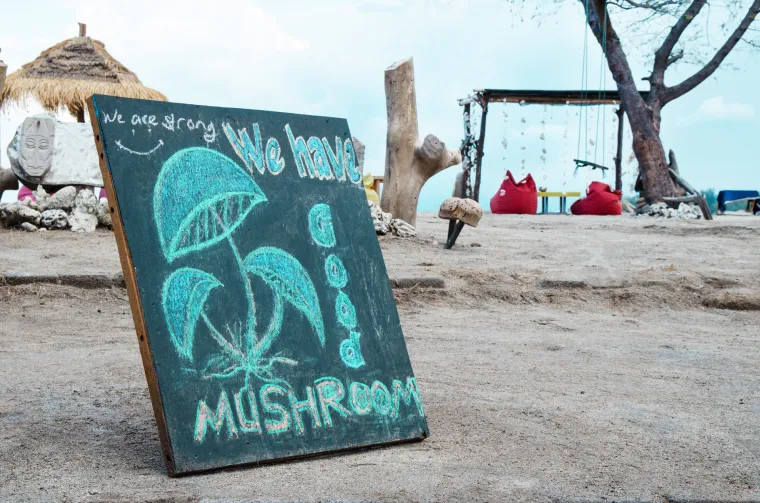 We are strong
We have
Good
MUSHROOM